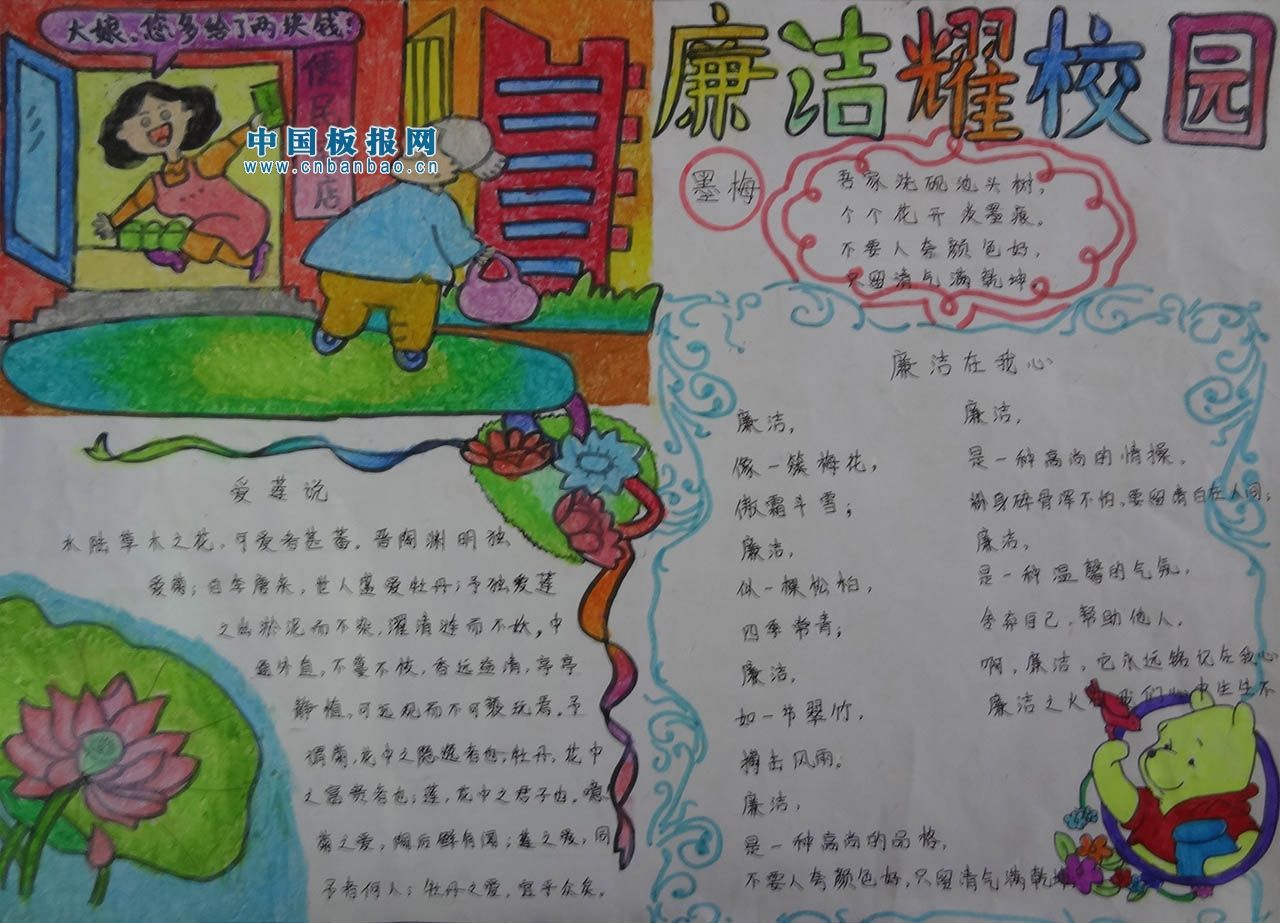 大娘、您多给了两块钱!
便民店
中国板报网
www.cnbanbao.cn
廉洁耀校园
墨梅
吾家洗砚池头树，
个个花开淡墨痕。
不要人夸颜色好，
只留清气满乾坤。
爱莲说
水陆草木之花，可爱者甚蕃。晋陶渊明独
爱菊；自李唐来，世人盛爱牡丹；予独爱莲
之出淤泥而不染，濯清涟而不妖，中
通外直，不蔓不枝，香远益清，亭亭
静植，可远观而不可亵玩焉。予
谓菊，花中之隐逸者也；牡丹，花中
之富贵者也；莲，花中之君子也。噫！
菊之爱，陶后鲜有闻；莲之爱，同
予者何人；牡丹之爱，宜乎众矣。
廉洁在我心
廉洁，
像一簇梅花，
傲霜斗雪；
廉洁，
似一棵松柏，
四季常青；
廉洁，
如一节翠竹，
搏击风雨。
廉洁，
是一种高尚的品格，
不要人夸颜色好，只留清气满乾坤
廉洁，
是一种高尚的情操，
粉身碎骨浑不怕，要留清白在人间；
廉洁，
是一种温馨的气氛，
舍弃自己，帮助他人。
啊，廉洁，它永远铭记在我心
廉洁之火 我们心中生生不